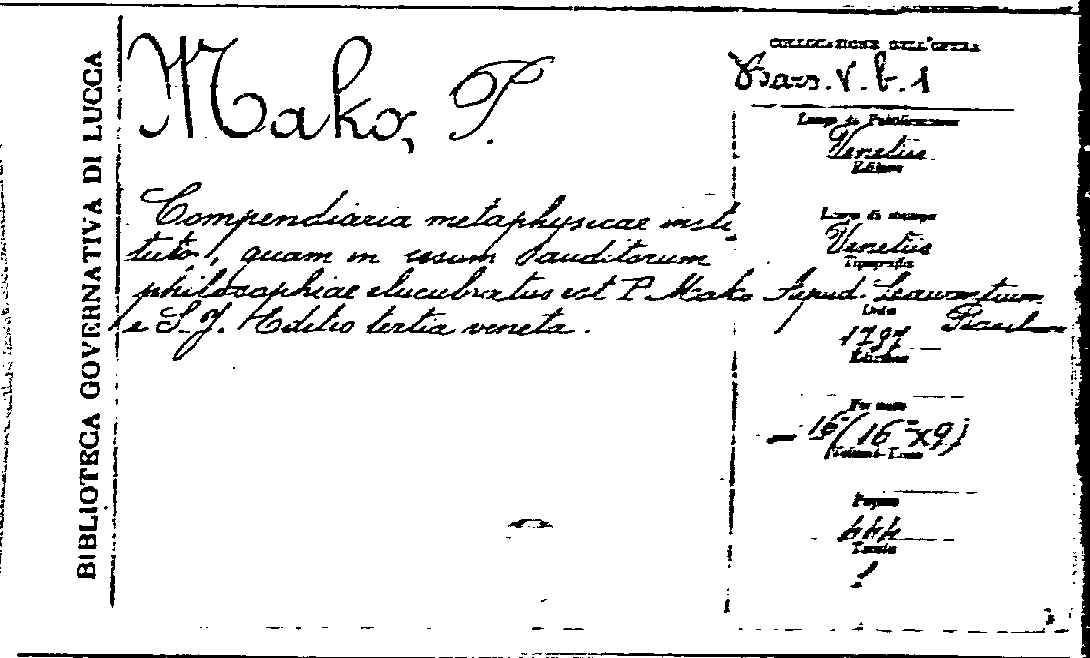 BIBLIOTECA GOVERNATIVA DI LUCCA
Mako, P.
Compendiaria metaphysicae insti
tutio, quam in usum auditorum
philosophiae elucubratus est P. Mako
e S. J. Editio tertia veneta.
COLLOCAZIONE DELL'OPERA
V. b. 1
Luogo di Pubblicazione
Venetiis
Editore
Luogo di stampa
Venetiis
Tipografia
Apud. Laurentium
Data
1797
Edizione
Formato
16° (16 x 9)
Volumi-Tomo
Pagine
444
Tavole
1